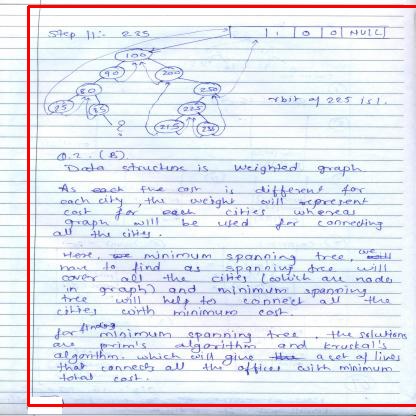 Step 11:- 235
1 0 0 NULL
100
90 200
80 250
225
rbit of 225 is 1.
?
Q.2. (B).
Data structure is weighted graph.
As each the cost is different for
each city, the weight will represent
cost for each cities whereas
graph will be used for connecting
all the cities.
Here, minimum spanning tree, we
have to find as spanning tree will
cover all the cities (which are nodes
in graph) and minimum spanning
tree will help to connect all the
cities with minimum cost.
for finding minimum spanning tree, the solutions
are prim's algorithm and kruskal's
algorithm. which will give a set of lines
that connects all the offices with minimum
total cost.